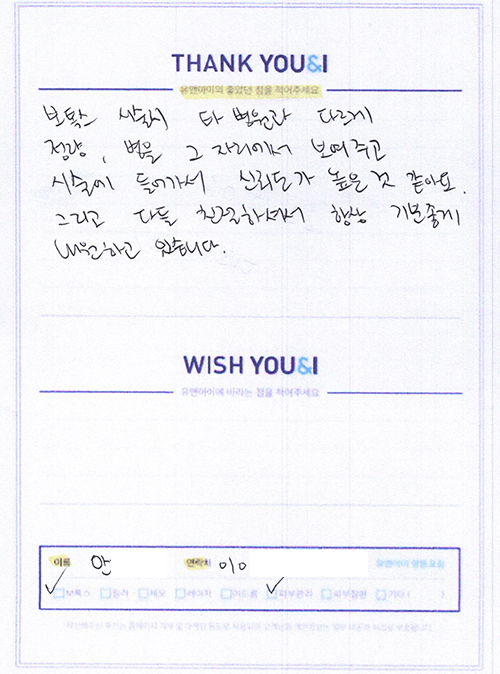 THANK YOU&I
유앤아이의 좋았던 점을 적어주세요
보톡스 시술시 타 병원과 다르게
정량, 병을 그 자리에서 보여주고
시술에 들어가서 신뢰도가 높은것 같아요.
그리고 다들 친절하셔서 항상 기분좋게
내원하고 있습니다.
WISH YOU&I
유앤아이에 바라는 점을 적어주세요
이름 안 연락처 010 유앤아이
보톡스 필러 제모 레이저 여드름 피부관리 피부질환 기타 ( )